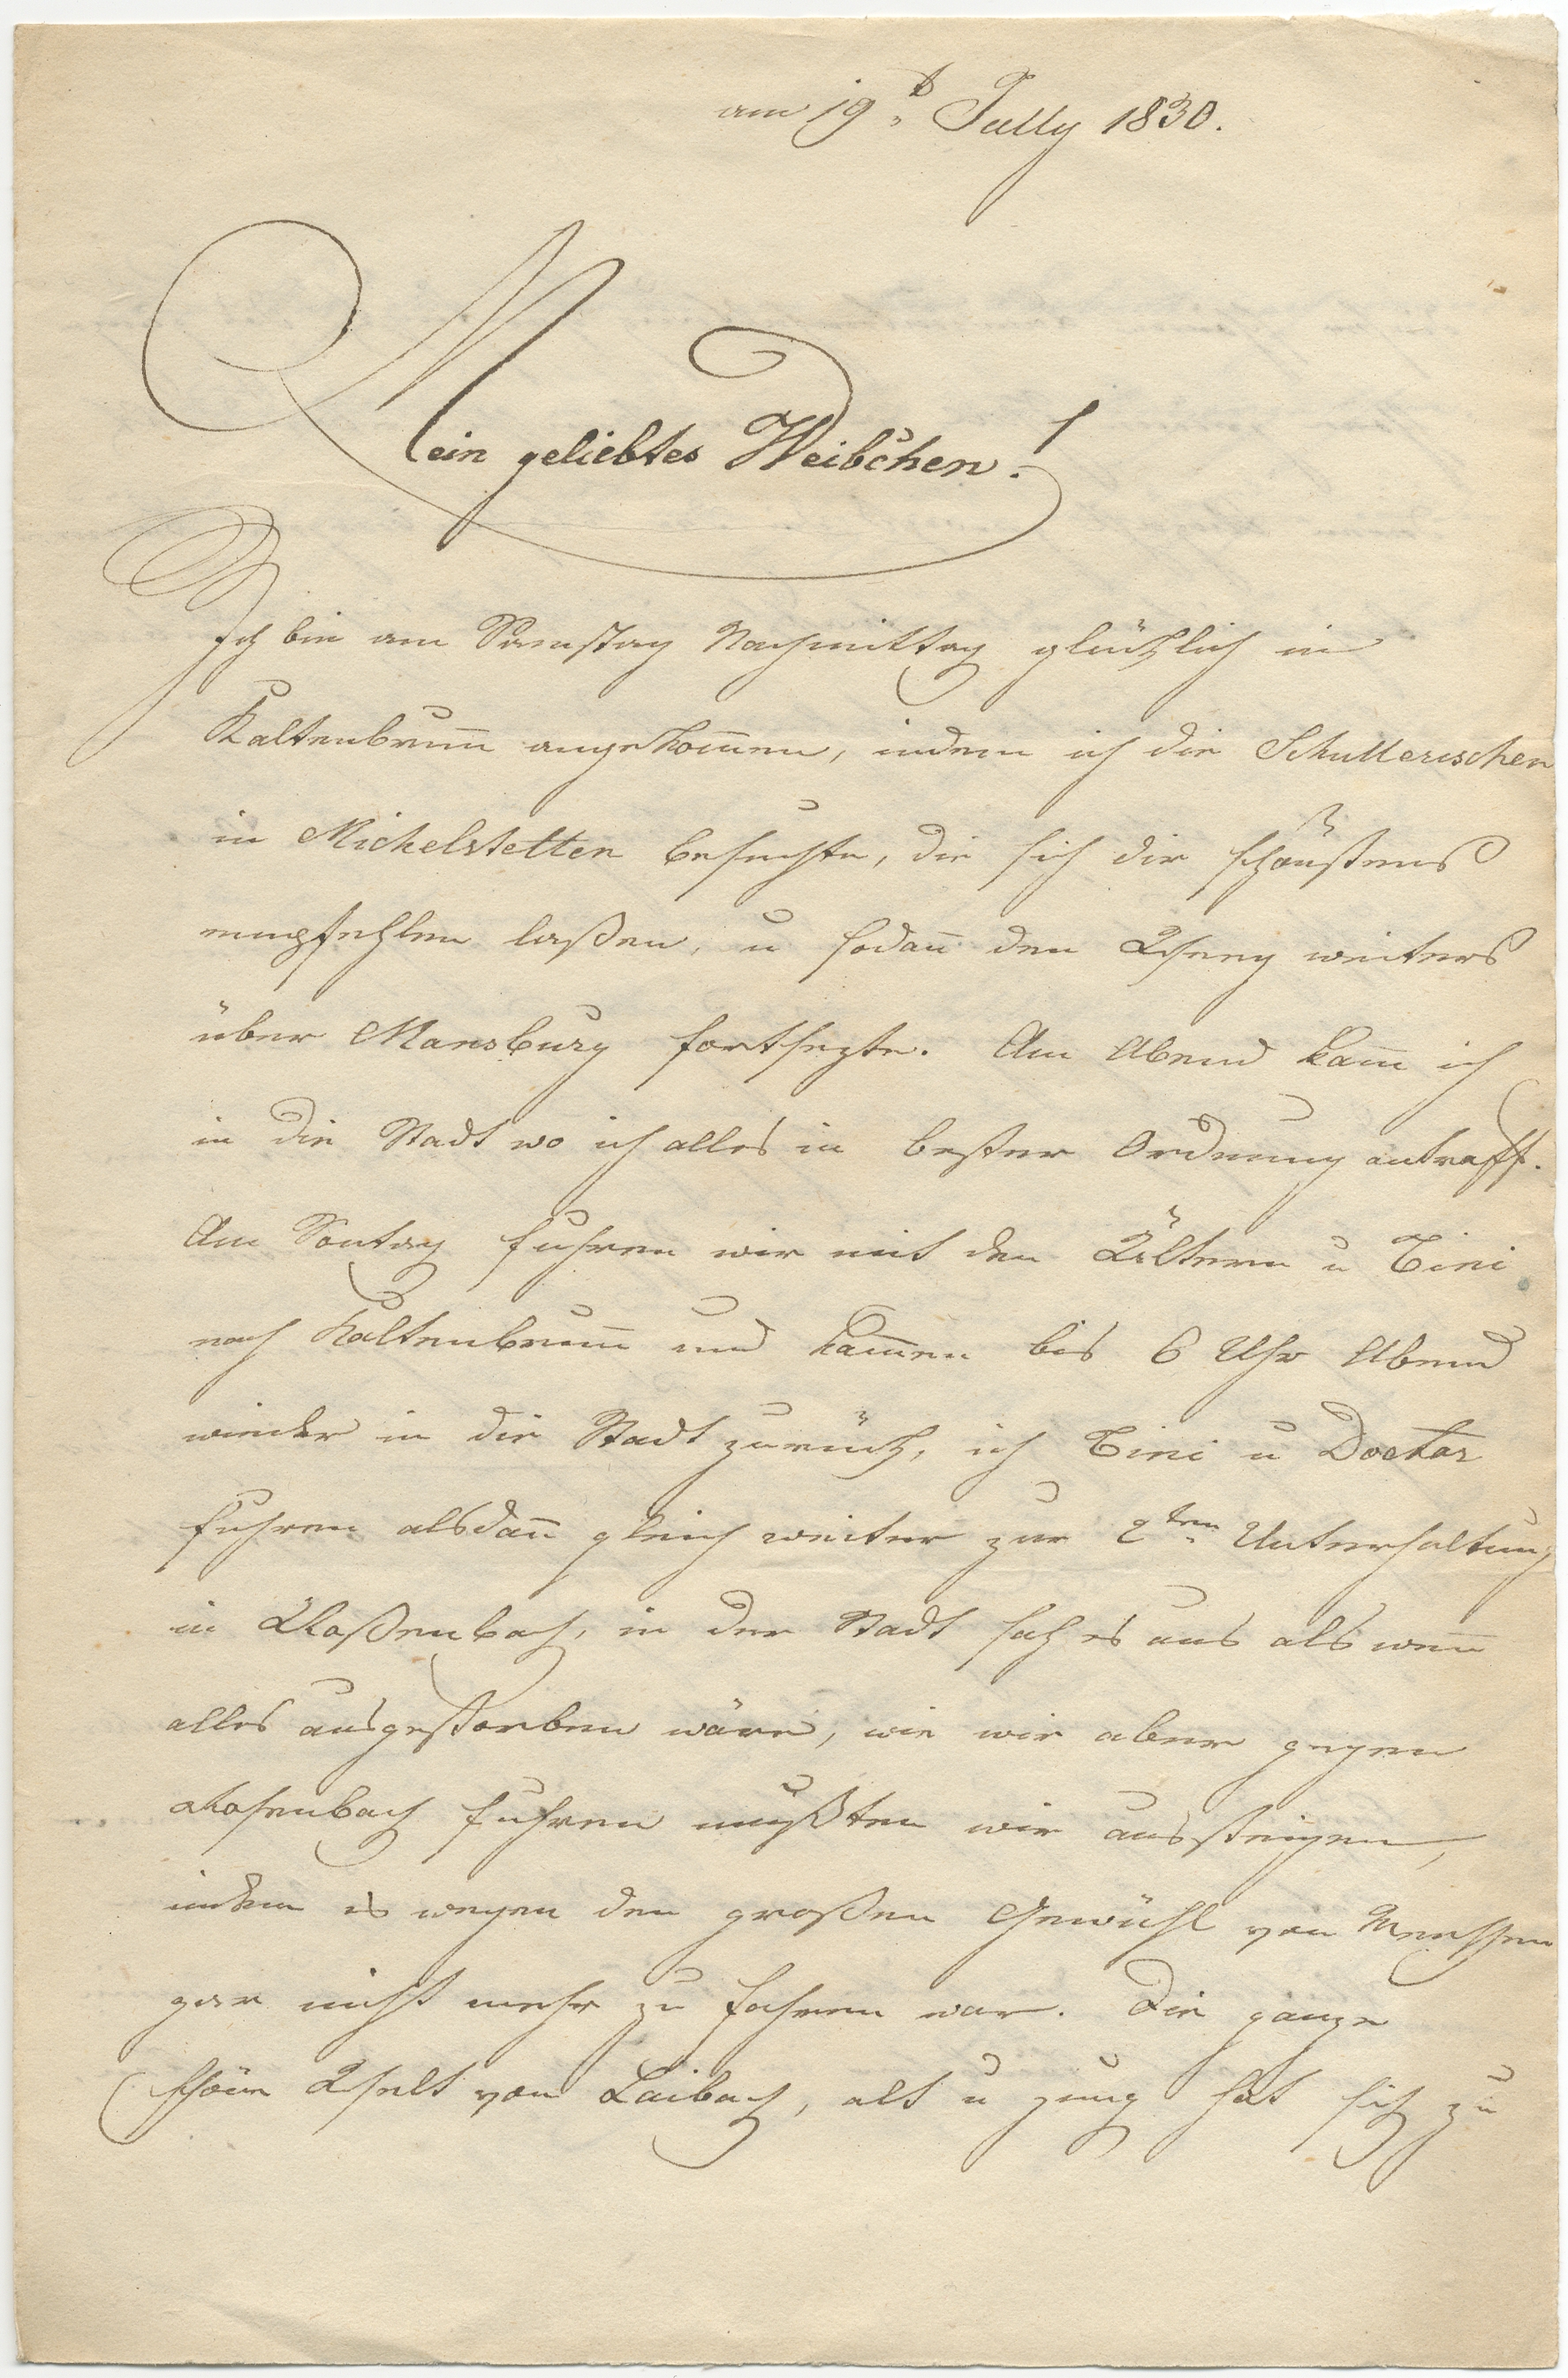 am 19t July 1830.
Mein geliebtes Weibchen!
Ich bin am Samstag Nachmittag glücklich in
Kaltenbrun̄ angekom̄en, indem ich die Schullerischen
in Michelstetten besuchte, die sich dir schönstens
empfehlen laßen, u sodan̄ den Weeg weiters
über Mansburg fortsezte. Am Abend kam̄ ich
in die Stadt wo ich alles in bester Ordnung antraff.
Am Sontag fuhren wir mit den Ältern u Tini
nach Kaltenbrun̄ und kam̄en bis 6 Uhr Abend
wieder in die Stadt zurück, ich Tini u Doctor
fuhren alsdan̄ gleich weiter zur 2ten Unterhaltung
in Roßenbach, in der Stadt sah es aus als wen̄
alles ausgestorben wäre, wie wir aber gegen
Rosenbach fuhren mußten wir aussteigen,
indem es wegen den großen Gewühl von Menschen
gar nicht mehr zu fahren war. Die ganze
schöne Welt von Laibach, alt u jung hat sich zu